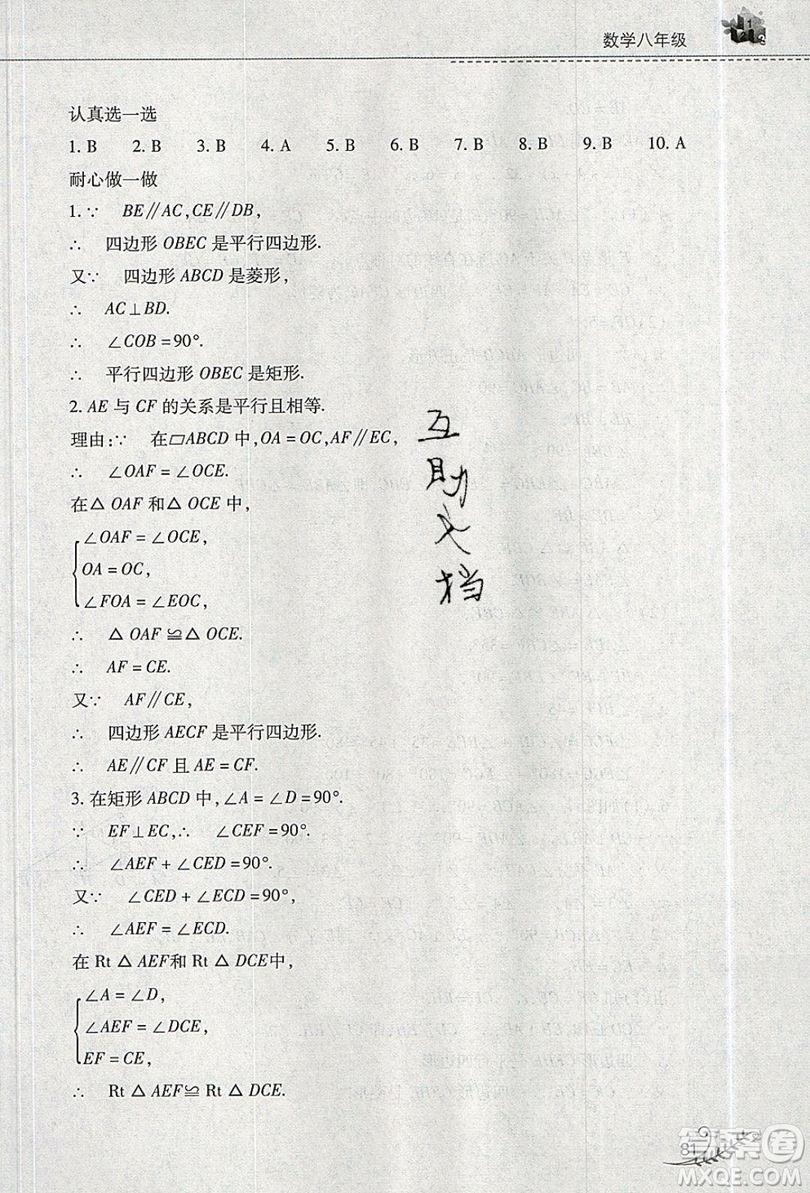 数学八年级
认真选一选
1. B 2. B 3. B 4. A 5. B 6. B 7. B 8. B 9. B 10. A
耐心做一做
1. ∵ BE∥AC,CE∥DB,
∴ 四边形 OBEC 是平行四边形.
又∵ 四边形 ABCD 是菱形,
∴ AC⊥BD.
∴ ∠COB=90°.
∴ 平行四边形 OBEC 是矩形.
2. AE 与 CF 的关系是平行且相等.
理由:∵ 在▱ABCD 中,OA=OC,AF∥EC,
∴ ∠OAF=∠OCE.
在△ OAF 和△ OCE 中,
∠OAF=∠OCE,
OA=OC,
∠FOA=∠EOC,
∴ △ OAF≌△ OCE.
∴ AF=CE.
又∵ AF∥CE,
∴ 四边形 AECF 是平行四边形.
∴ AE∥CF 且 AE=CF.
3. 在矩形 ABCD 中,∠A=∠D=90°.
∵ EF⊥EC,∴ ∠CEF=90°.
∴ ∠AEF+∠CED=90°.
又∵ ∠CED+∠ECD=90°,
∴ ∠AEF=∠ECD.
在 Rt △ AEF和 Rt △ DCE中,
∠A=∠D,
∠AEF=∠DCE,
EF=CE,
∴ Rt △ AEF≌ Rt △ DCE.
互
助
文
档
81
答案卷
MXQE.COM